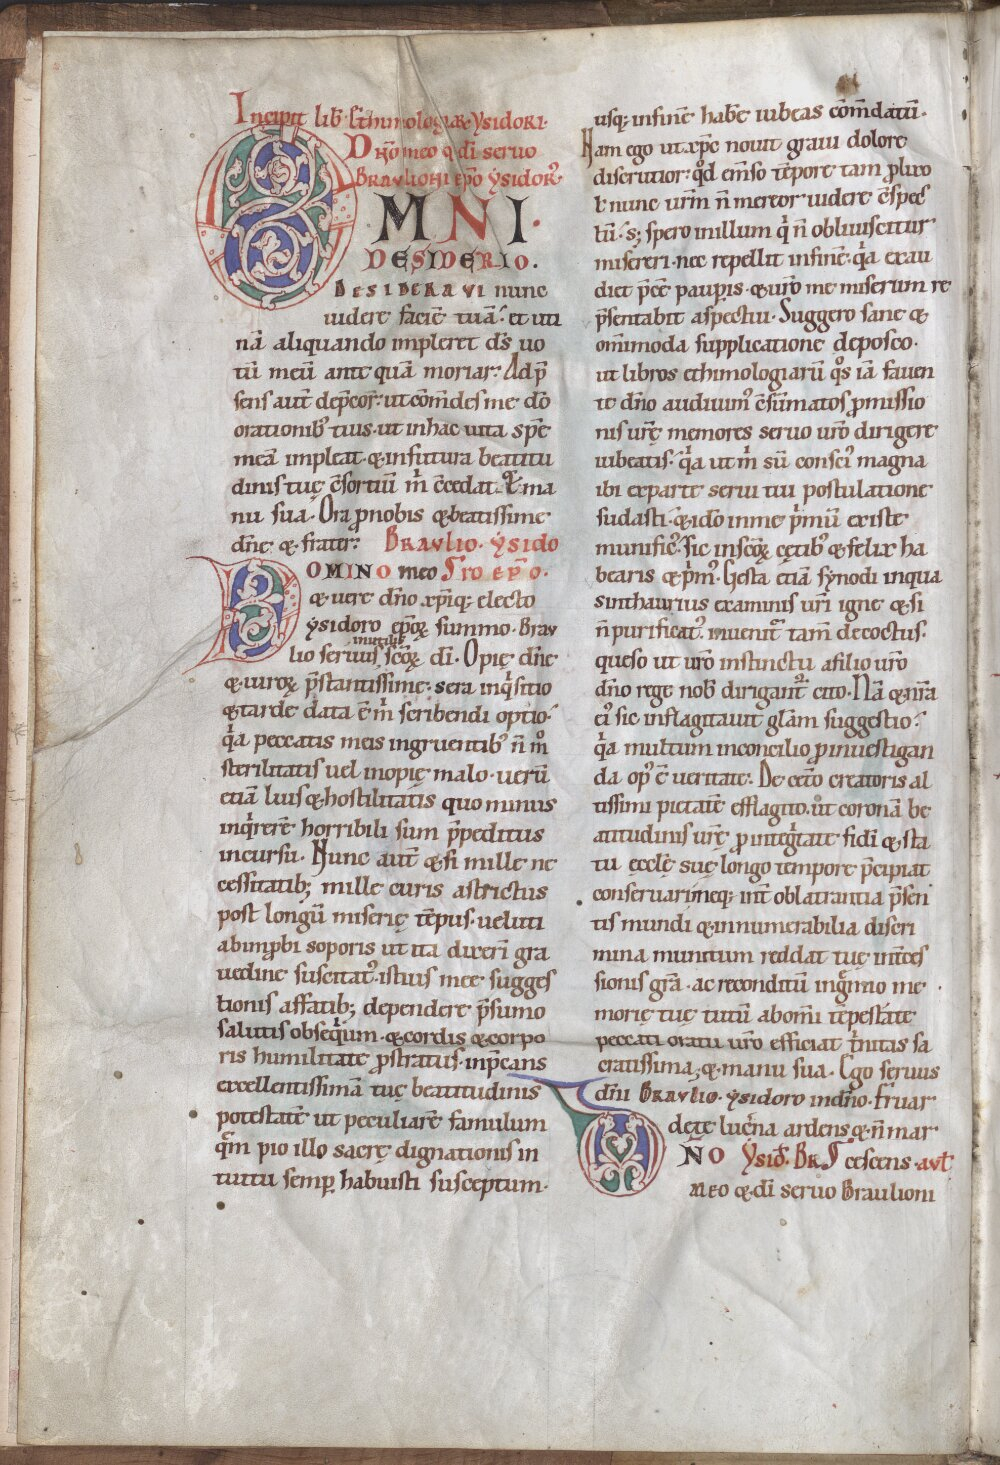 Incipit lib̄ Ethimologiaꝝ ysidori.
Dn̄o meo ⁊ d̄i servo
Braulioni ep̄o ysidor᷒
OMNI.
DESIDERIO.
Desideravi nunc
uidere faciē tuā. et uti
nā aliquando impleret d̄s uo
tū meū ante quā moriar. Ad p̄
sens aut̄ dep̄cor. ut cōmdes me dō
orationib᷒ tuis. ut in hac uita spē
meā impleat. ⁊ in futura beatitu
dinis tuę c̄sortiū m̄ c̄cedat. Et ma
nu sua. Ora pro nobis ⁊ beatissime
dn̄e ⁊ frater. Braulio. ysido
DOMINO meo ro ep̄o.
⁊ uere dn̄o xp̄iq; electo
ysidoro ep̄oꝝ summo. Brau
lio seruus inutilis sc̄oꝝ d̄i. O pię dn̄e
⁊ uiroꝝ p̄stantissime. sera inq̇sitio
⁊ tarde data ē m̄ scribendi optio.
q̇a peccatis meis ingruentib᷒ n̄ m̊
sterilitatis uel inopię malo. uerū
etiā luis ⁊ hostilitatis quo minus
inq̇rerē horribili sum p̄peditus
incursu. Nunc aut̄ ⁊ si mille ne
cessitatib; mille curis astrictus
post longū miserię tēpus. ueluti
ab inprobi soporis ut ita dixeri gra
uedine suscitat᷒. istius mee sugges
tionis affatib; dependere p̄sumo
salutis obseq̇um. ⁊ cordis ⁊ corpo
ris humilitate prostratus. inp̄cans
excellentissimā tuę beatitudinis
potestatē ut peculiarē famulum
quem pio illo sacrę dignationis in
tuitu semp habuisti susceptum.
usq; in finē habē iubeas cōmdatū.
Nam ego ut xp̄c nouit graui dolore
discrutior. qd̄ emso tēpore tam prolixo
ł nunc ur̄m n̄ mereor uidere c̄spec
tū. s; spero in illum q̇ n̄ obliuiscitur
misereri. nec repellit in finē. q̇a exau
diet p̄ce pauperis. ⁊ ur̄o me miserum re
p̄sentabit aspectui. Suggero sane ⁊
om̄imoda supplicatione deposco.
ut libros ethimologiarū q̊s iā fauen
te dn̄o audiuim᷒ c̄sūmatos promissio
nis ur̄ę memores seruo ur̄o dirigere
iubeatis. q̇a ut m̄ sū consci᷒ magna
ibi ex parte serui tui postulatione
sudasti. ⁊ ido in me p̄mū existe
munific᷒. sic in sc̄oꝝ cętib᷒ ⁊ felix ha
bearis ⁊ p̄m᷒. Gesta etiā synodi in qua
sinthaurius examinis ur̄i igne ⁊ si
n̄ purificat᷒. inuenit tam̄ decoctus.
queso ut ur̄o instinctu a filio ur̄o
dn̄o rege nob̄ dirigant̄ cito. Nā ⁊ nr̄a
ei᷒ sic inflagitauit gl̄am suggestio.
q̇a multum in concilio pro inuestigan
da op᷒ ē ueritate. De cet̄o creatoris al
tissimi pietatē efflagito. ut coronā be
atitudinis ur̄ę pro inteġtate fidi ⁊ sta
tu eccl̄ę suę longo tempore p̄cipiat
conseruari. meq; int̄ oblatrantia p̄sen
tis mundi ⁊ innumerabilia discri
mina munitum reddat tuę int̄ces
sionis gr̄a. ac reconditū in g̊mio me
morię tuę tutū ab om̄i tēpestate
peccati oratu ur̄o efficiat ṫnitas sa
cratissima; ⁊ manu sua. Ego seruus
dn̄i Braulio. ysidoro in dn̄o. Fruar
te lucerna ardens ⁊ n̄ mar
DN̄O Ysid̄. Br̄ cescens. aut̄
meo ⁊ d̄i seruo Braulioni